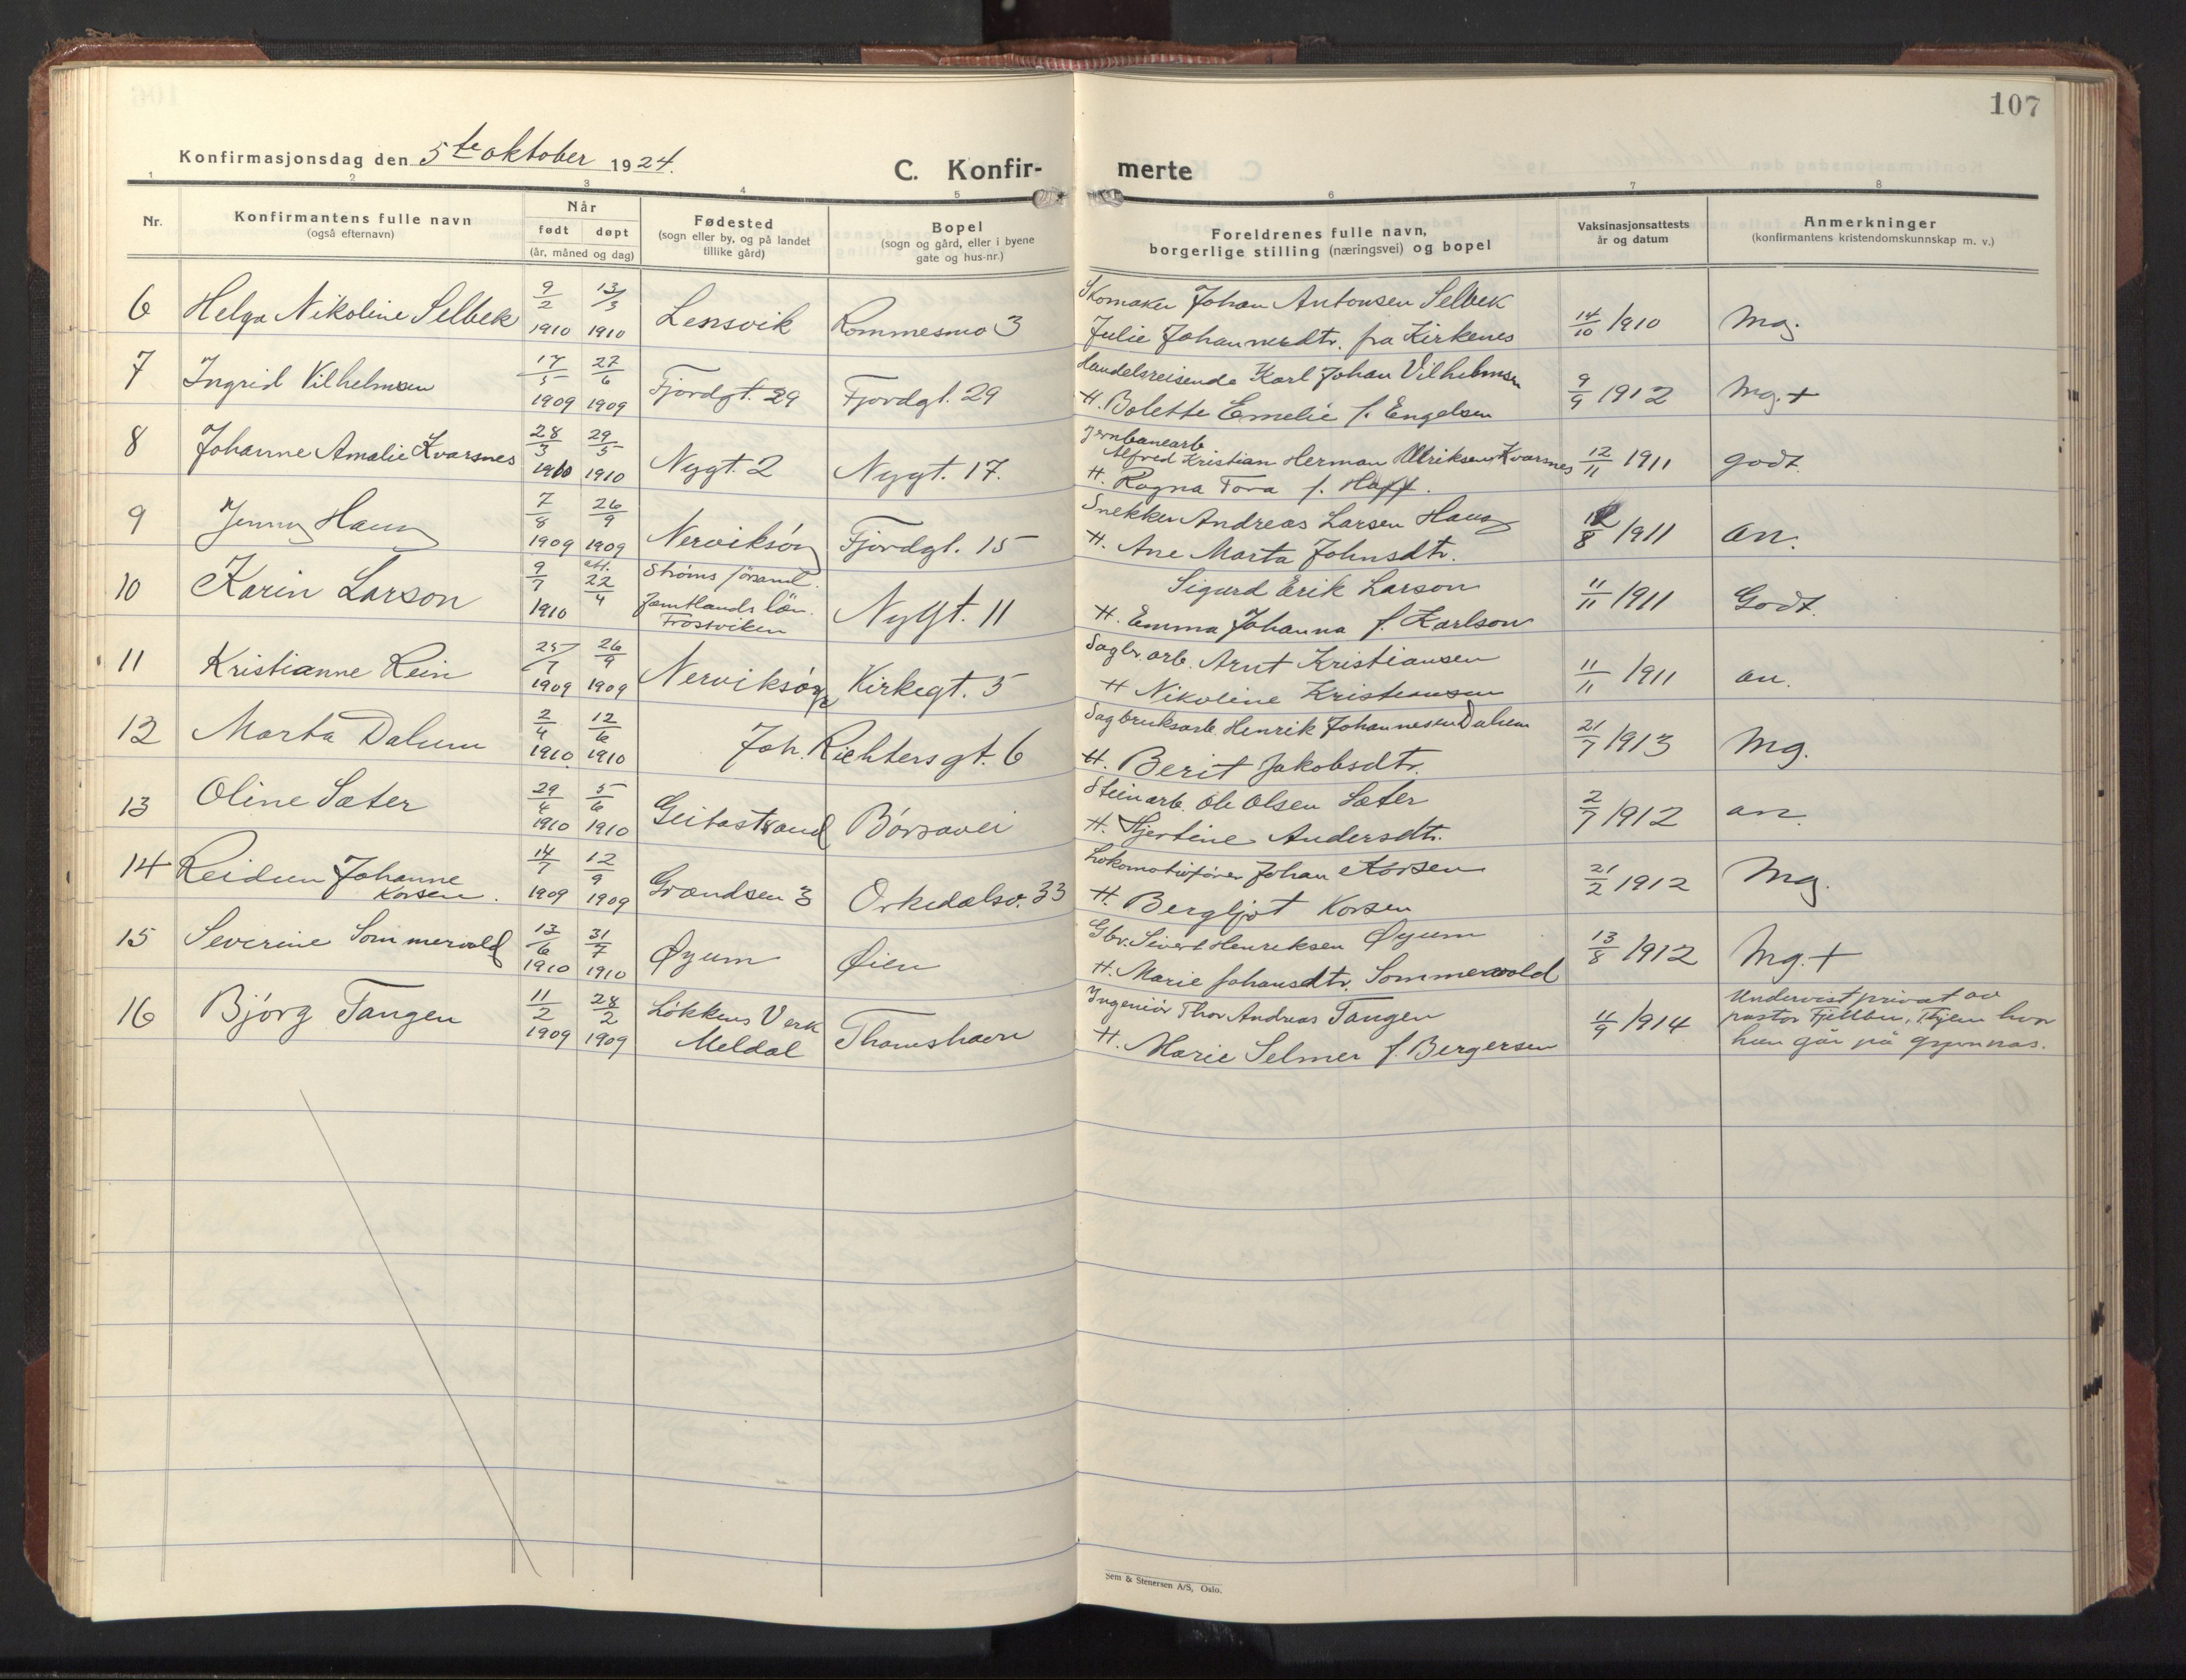 107
Konfirmasjonsdag den 5te oktober 1924.
C. Konfir-
merte
1 2 3 4 5 6 7 8
Nr.
Konfirmantens fulle navn
(også efternavn)
Når
født døpt
(år, måned og dag)
Fødested
(sogn eller by, og på landet
tillike gård)
Bopel
(sogn og gård, eller i byene
gate og hus-nr.)
Foreldrenes fulle navn,
borgerlige stilling (næringsvei) og bopel
Vaksinasjonsattests
år og datum
Anmerkninger
(konfirmantens kristendomskunnskap m. v.)
6 Helga Nikoline Selbek 9/2 1910 13/3 1910 Lensvik Rommesmo 3
Skomaker Johan Antonsen Selbek
Julie Johannesdtr. fra Kirkenes 14/10 1910 Mg.
7 Ingrid Vilhelmsen 17/5 1909 27/6 1909 Fjordgt. 29 Fjordgt. 29
Handelsreisende Karl Johan Vilhelmsen
H. Bolette Emelie f. Engelsen 9/9 1912 Mg.+
8 Johanne Amalie Kvarsnes 28/3 1910 29/5 1910 Nygt. 2 Nygt. 17.
Jernbanearb.
Alfred Kristian Herman Ulriksen Kvarsnes
H. Ragna Tora f. Hoff. 12/11 1911 godt.
9 Jenny Haug 7/8 1909 26/9 1909 Nerviksøra Fjordgt. 15
Snekker Andreas Larsen Haug
H. Ane Marta Johnsdtr. 12/8 1911 an.
10 Karin Larson 9/7 1910 att. 22/4 Ströms församl.
Jemtlands län.
Frostviken
Nygt. 11
Sigurd Erik Larson
H. Emma Johanna f. Karlson 11/11 1911 Godt.
11 Kristianne Rein 25/7 1909 26/9 1909 Nerviksøra Kirkegt. 5
Sagbr. arb. Arnt Kristiansen
H Nikoline Kristiansen 11/11 1911 an.
12 Marta Dalum 2/4 1910 12/6 1910 Joh. Richtersgt. 6
Sagbruksarb Henrik Johannesen Dalum
H. Berit Jakobsdtr. 21/7 1913 Mg.
13 Oline Sæter 29/4 1910 5/6 1910 Geitastrand Børsavei
Steinarb. Ole Olsen Sæter
H. Hjertine Andersdtr. 2/7 1912 an.
14 Reidun Johanne
Korsen. 14/7 1909 12/9 1909 Grændsen 3 Orkedalsv. 33
Lokomotivfører Johan Korsen
H. Bergljot Korsen 21/2 1912 Mg.
15 Severine Sommervold 13/6 1910 31/7 1910 Øyum Øien
Gbr. Sivert Henriksen Øyum
H. Marie Johansdtr. Sommervold 13/8 1912 Mg.+
16 Bjørg Tangen 11/2 1909 28/2 1909 Løkkens Verk
Meldal
Thamshavn
Ingeniør Thor Andreas Tangen
H. Marie Selmer f. Bergersen 11/9 1914
Undervist privat av
pastor Fjellbu, Thjem hvor
hun går på gymnas.
Sem & Stenersen A/S, Oslo.